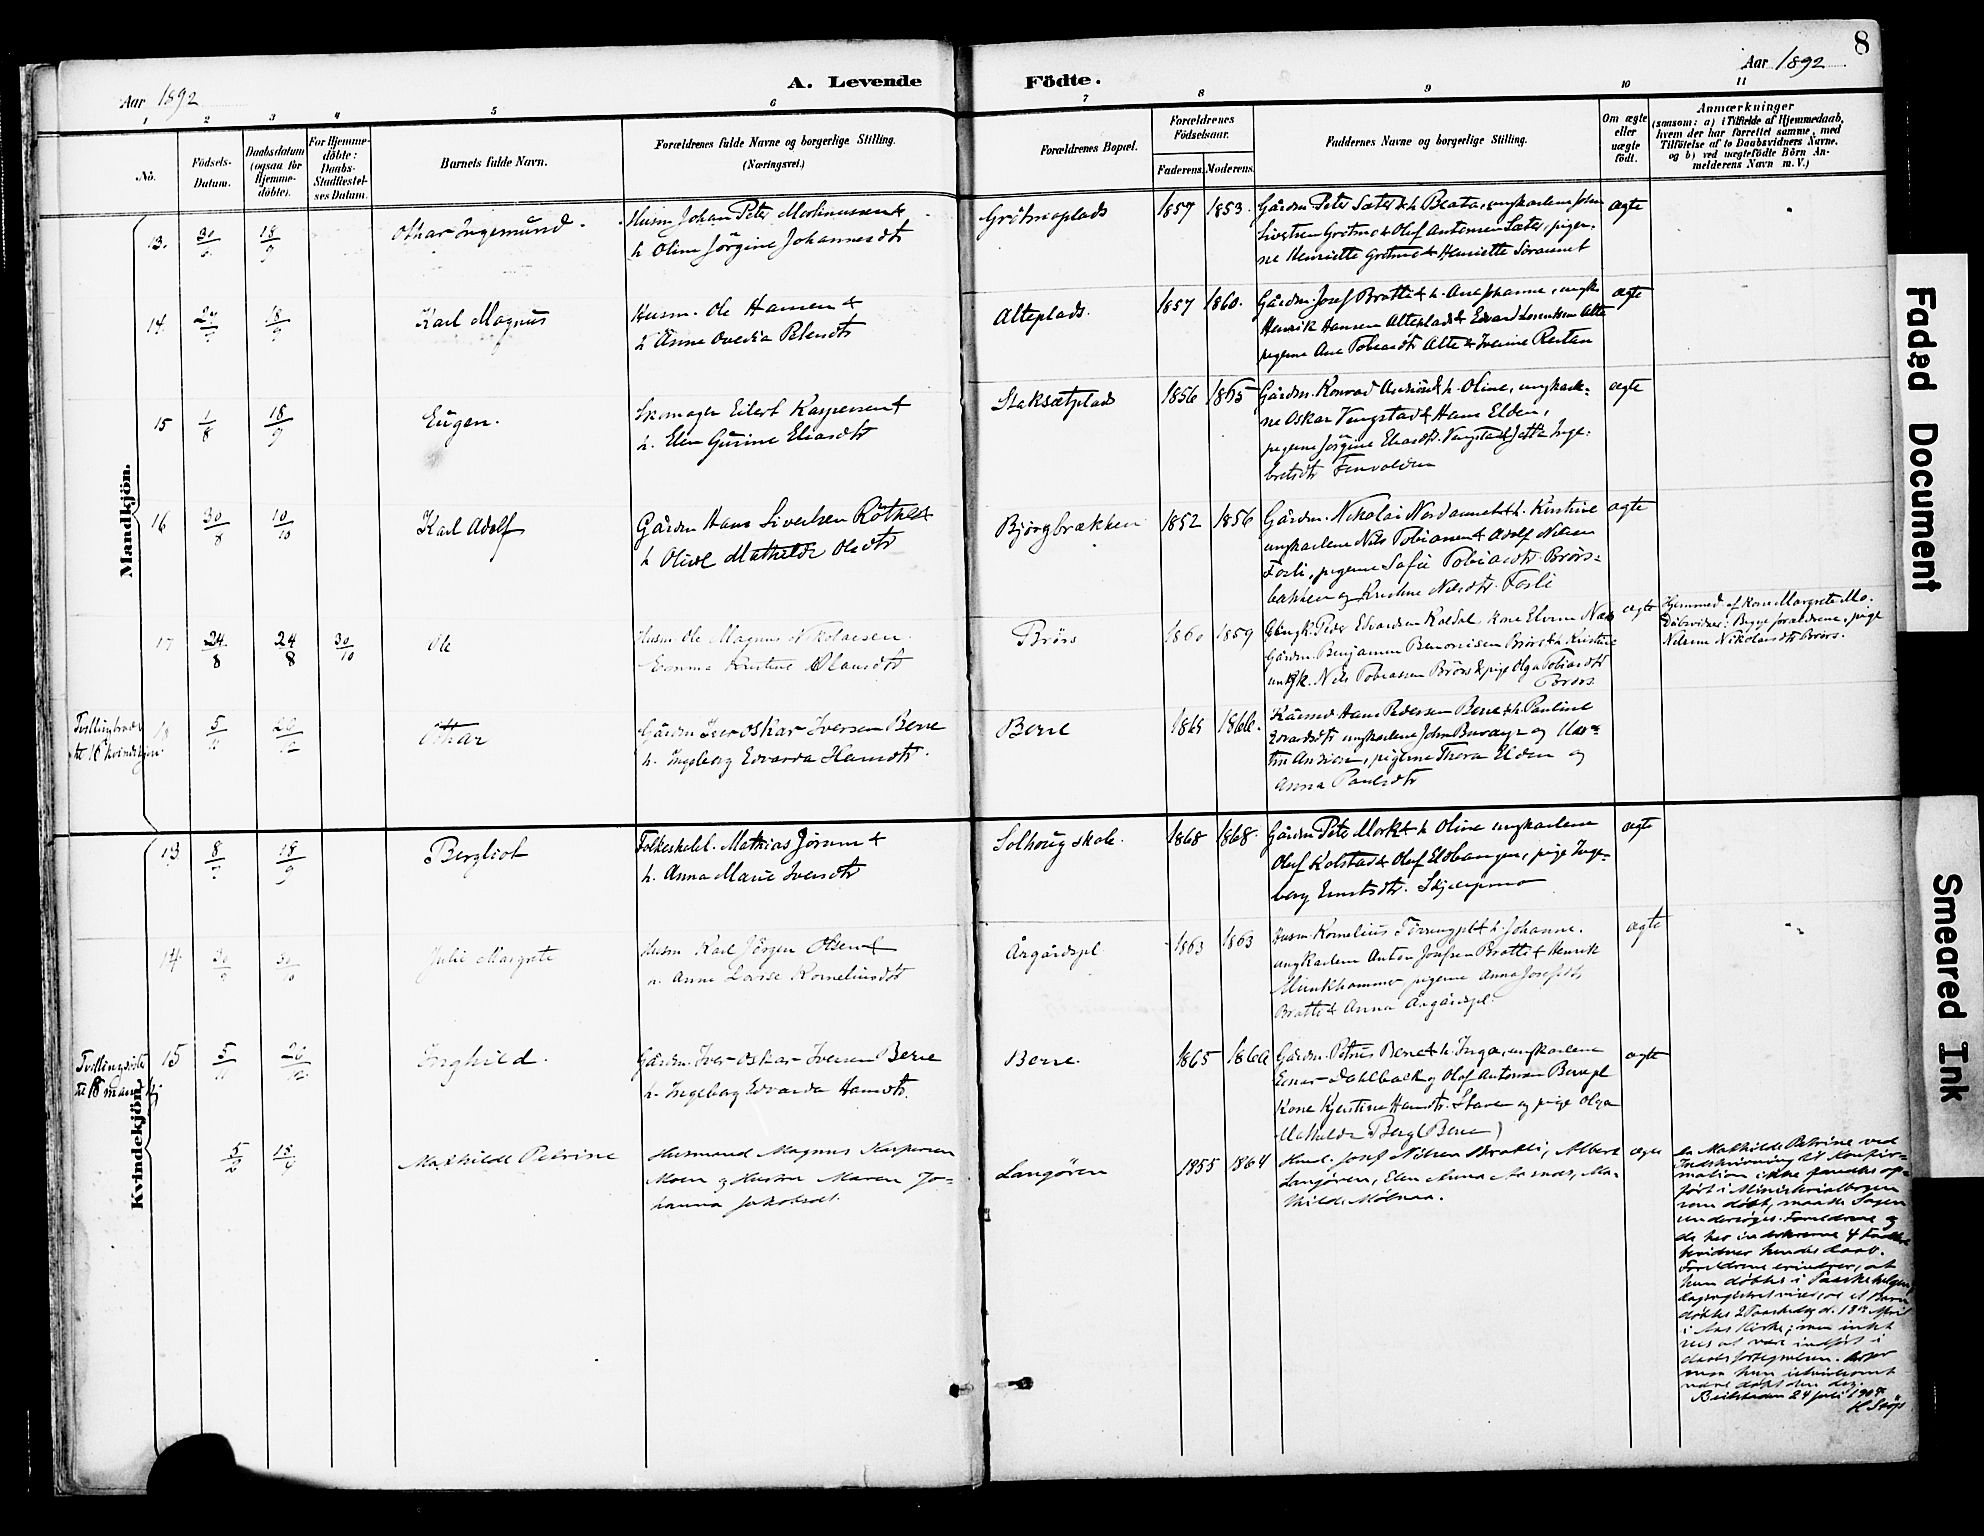 8
Aar 1892
A. Levende Födte.
Aar 1892
1 2 3 4 5 6 7 8 9 10 11
No.
Födsels-
Datum.
Daabsdatum
(ogsaa for
Hjemme-
döbte).
For Hjemme-
döbte:
Daabs-
Stadfæstel-
ses Datum.
Barnets fulde Navn.
Forældrenes fulde Navne og borgerlige Stilling.
(Næringsvei.)
Forældrenes Bopæl.
Forældrenes
Födselsaar.
Faderens. Moderens.
Faddernes Navne og borgerlige Stilling.
Om ægte
eller
uægte
födt.
Anmærkninger
(saasom: a) i Tilfælde af Hjemmedaab,
hvem der har forrettet samme, med
Tilföielse af to Daabsvidners Navne,
og b) ved uægtefödte Börn An-
melderens Navn m. V.)
Mandkjön.
13. 18/9
Othar Ingemund.
Husm Johan Peter Martinussen &
h Oline Jörgine Johannesdtr
Grötmoplads
1857 1853.
Gårdm. Peter Sæter & h. Beata, ungkarlene John
Sivertsen Grötmo & Olof Antonsen Sæter, piger-
ne Henriette Grötmo & Henriette Söraunet
ægte
14. 18/9
Karl Magnus
Husm. Ole Hansen &
h Anne Ovedia Petersdtr
Alteplads.
1857 1860.
Gårdm. Josef Bratli & h. Ane Johanne, ungk
Henrik Hansen Alteplads & Edvard Lorentsen Alte
pigerne Ane Tobiasdtr Alte & Iverine Restan
ægte
15 1/8 18/9
Eugen.
Skomager Eilert Kaspersen &
h. Elen Gurine Eliasdtr
Staksætplads
1856 1865
Gårdm. Konrad h. Oline, ungkarle-
ne Oskar Vengstad & Hans Elden,
pigerne Jörgine Eliasdtr. Vengstad & Jette Inge-
bretsdtr
ægte
16 30/8 10/10
Karl Adolf
Gårdm Hans Sivertsen &
h Olive Mathilde Olsdtr
Bjørgbrækken
1852 1856
Gårdm. Nikolai Nordaunet & h. Kirstine
ungkarlene Nils Tobiassen & Adolf Nilsen
Fosli, pigerne Sofie Tobiasdtr Brørs-
bakken og Kristine Nilsdtr. Fosli
ægte
17 24/8 24/8 30/10
Ole
Husm Ole Magnus Nikolaisen.
Emma Kristine Olausdtr
Brörs
1860 1859
Ungk. Peder Edvardsen Kaldal kone Elverine Næs
Gårdm. Benjamin Benonisen Brörs & h. Kristine
ungk. Nils Tobiassen Brörs & pige Olga Tobiasdtr
Brörs
ægte
Hjemmed. af kone Margrete Mo.
Dåbsvidner: Begge forældrene, pige
Nelsine Nikolaisdtr Brörs.
Tvillingbroder
til 15 kvindekjön.
18 5/11 26/12
Othar
Gårdm Iver Oskar Iversen Berre
h. Ingeborg Edvarda Hansdtr.
Berre
1865 1866.
Kårmd Hans Pedersen Berre & h. Pauline
Edvardsdtr ungkarlene John og Mar-
tin Andersen, pigerne Thora Elden og
Anna Paulsdtr
Kvindekjön.
13 18/9
Bergliot
Folkeskolel. Mathias Jörum &
h. Anna Marie Iversdtr
Solhoug skole.
1868 1868.
Gårdm. Peter Mork & h Oline ungkarlene
Oluf Kolstad & Oluf Eldbangen, pige Inge-
borg Ernstsdtr. Skjelegmo
ægte
14. 30/10
Julie Margrete
Husm Karl Jörgen Olsen &
h. Anne Lovise Korneliusdtr
Årgårdspl
1863 1863
Husm. Kornelius & h. Johanne.
ungkarlene Anton Josefsen Bratli & Henrik
Munkhammer pigerne Anna Josefsdtr
Bratli & Anna Årgårdspl.
ægte
Tvillingsöster
til 18 mandkj
15 5/11 26/12
Inghild.
Gårdm. Iver Oskar Iversen Berre
h. Ingeborg Edvarda Hansdtr.
Berre.
1865 1866
Gårdm. Petrus Berre & h. Inga, ungkarlene
Einar Dahlback og Olof Antonsen Berrepl
Kone Kjerstine Hansdtr. Staven og pige Olga
Mathilde Berg (Berre)
ægte
5/2 18/4
Mathilde Petrine
Husmand Magnus Kaspersen
Moen og Hustru Maren Jo-
hanna Jakobsdt.
Langören
1855 1864
Hmd. Josef Nilsen Bratli, Albert
Langören, Elen Anna Aasnæs, Ma-
thilde Molnaa.
ægte
Da Mathilde Petrine ved
Indskrivning til Konfir-
mation ikke fandtes op-
fört i Ministerialbogen
som döbt, maatte Sagen
undersöges. Forældrene og
de her indskrevne 4 Faddere
bevidner hendes daab.
Forældrene erindrer, at
hun döbtes i Paaskehelgen,
dagsregistret viser, at et Barn
döbtes 2 Paaskedag d. 18de April
i Aas Kirke; men intet
sees at være indfört i
daabsfortegnelsen. Derfor
maa hun utvivlsomt
være döbt den dag.
Beitstaden 24 juli 1907
Faded Document
Smeared Ink